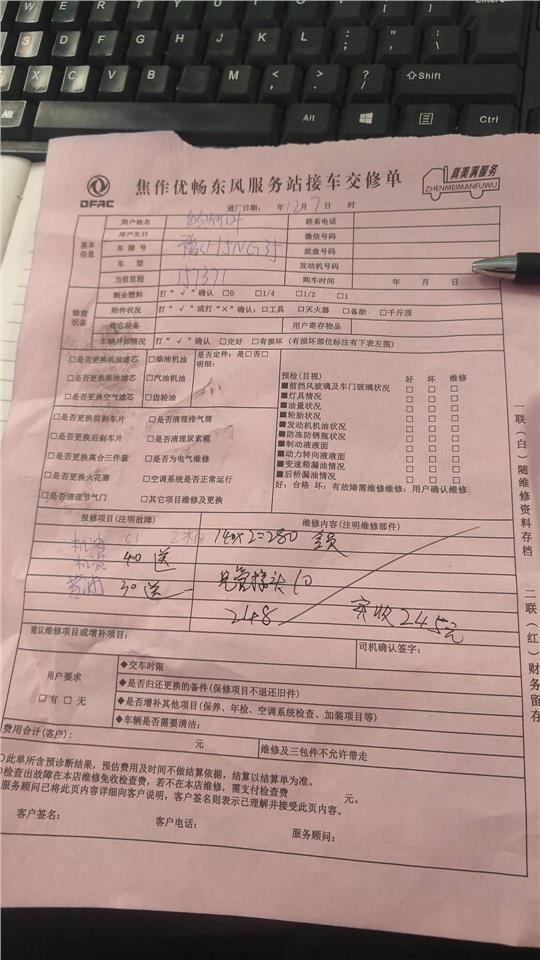 Enter
Q W E R T Y U I O P
S D F G H J K L : ; " '
Z X C V B N M < , > . ? / ⇧Shift
Alt Alt Ctrl
DFAC
焦作优畅东风服务站接车交修单
真美满服务
ZHENMEIMANFUWU
进厂日期： 年12月7日 时
基本信息
用户姓名 联系电话
用户生日 微信号码
车牌号 底盘号码
车型 发动机号码
当前里程 157371 购车时间 年 月 日
修前状态
剩余燃料 打“√”确认 □0 □1/4 □1/2 □1
附件状况 打“√”或打“×”确认：□工具 □灭火器 □备胎 □千斤顶
其它装备 用户寄存物品
车辆外部情况 打“√”确认 □完好 □有损坏（有损坏部位标注有下表左图）
□是否更换机油滤芯 □柴油机油 是否定件：是□否□
明细：
□是否更换柴油滤芯 □汽油机油
□是否更换空气滤芯 □齿轮油
□是否更换前刹车片 □是否清理排气筒
□是否更换后刹车片 □是否清理尿素箱
□是否更换离合三件套 □是否为电气维修
□是否更换火花塞 □空调系统是否正常运行
□是否清理节气门 □其它项目维修及更换
预检(目视) 好 坏 维修
■前挡风玻璃及车门玻璃状况 □ □ □
■灯具情况 □ □ □
■油量状况 □ □ □
■轮胎状况 □ □ □
■发动机机油状况 □ □ □
■防冻防锈瓶状况 □ □ □
■制动液液面 □ □ □
■动力转向液液面 □ □ □
■变速箱漏油情况 □ □ □
■后桥漏油情况 □ □ □
好：合格 坏：有故障需维修维修：用户确认维修
报修项目(注明故障) 维修内容(注明维修部件)
机油 140×2=280
机滤 40 送
黄油 30 送 接头 10
248 实收245元
建议维修项目或增补项目： 司机确认签字：
用户要求
□有 □无
◆交车时限
◆是否归还更换的备件(保修项目不退还旧件)
◆是否增补其他项目(保养、年检、空调系统检查、加装项目等)
◆车辆是否需要清洁：
费用合计(客户)： 元 维修及三包件不允许带走
此单所含预诊断结果，预估费用及时间不做结算依据，结算以结算单为准。
检查出故障在本店维修免收检查费，若不在本店维修，需支付检查费 元。
服务顾问已将此页内容详细向客户说明，客户签名则表示已理解并接受此页内容。
客户签名： 客户电话： 服务顾问：
一联（白）随维修资料存档
二联（红）财务留存